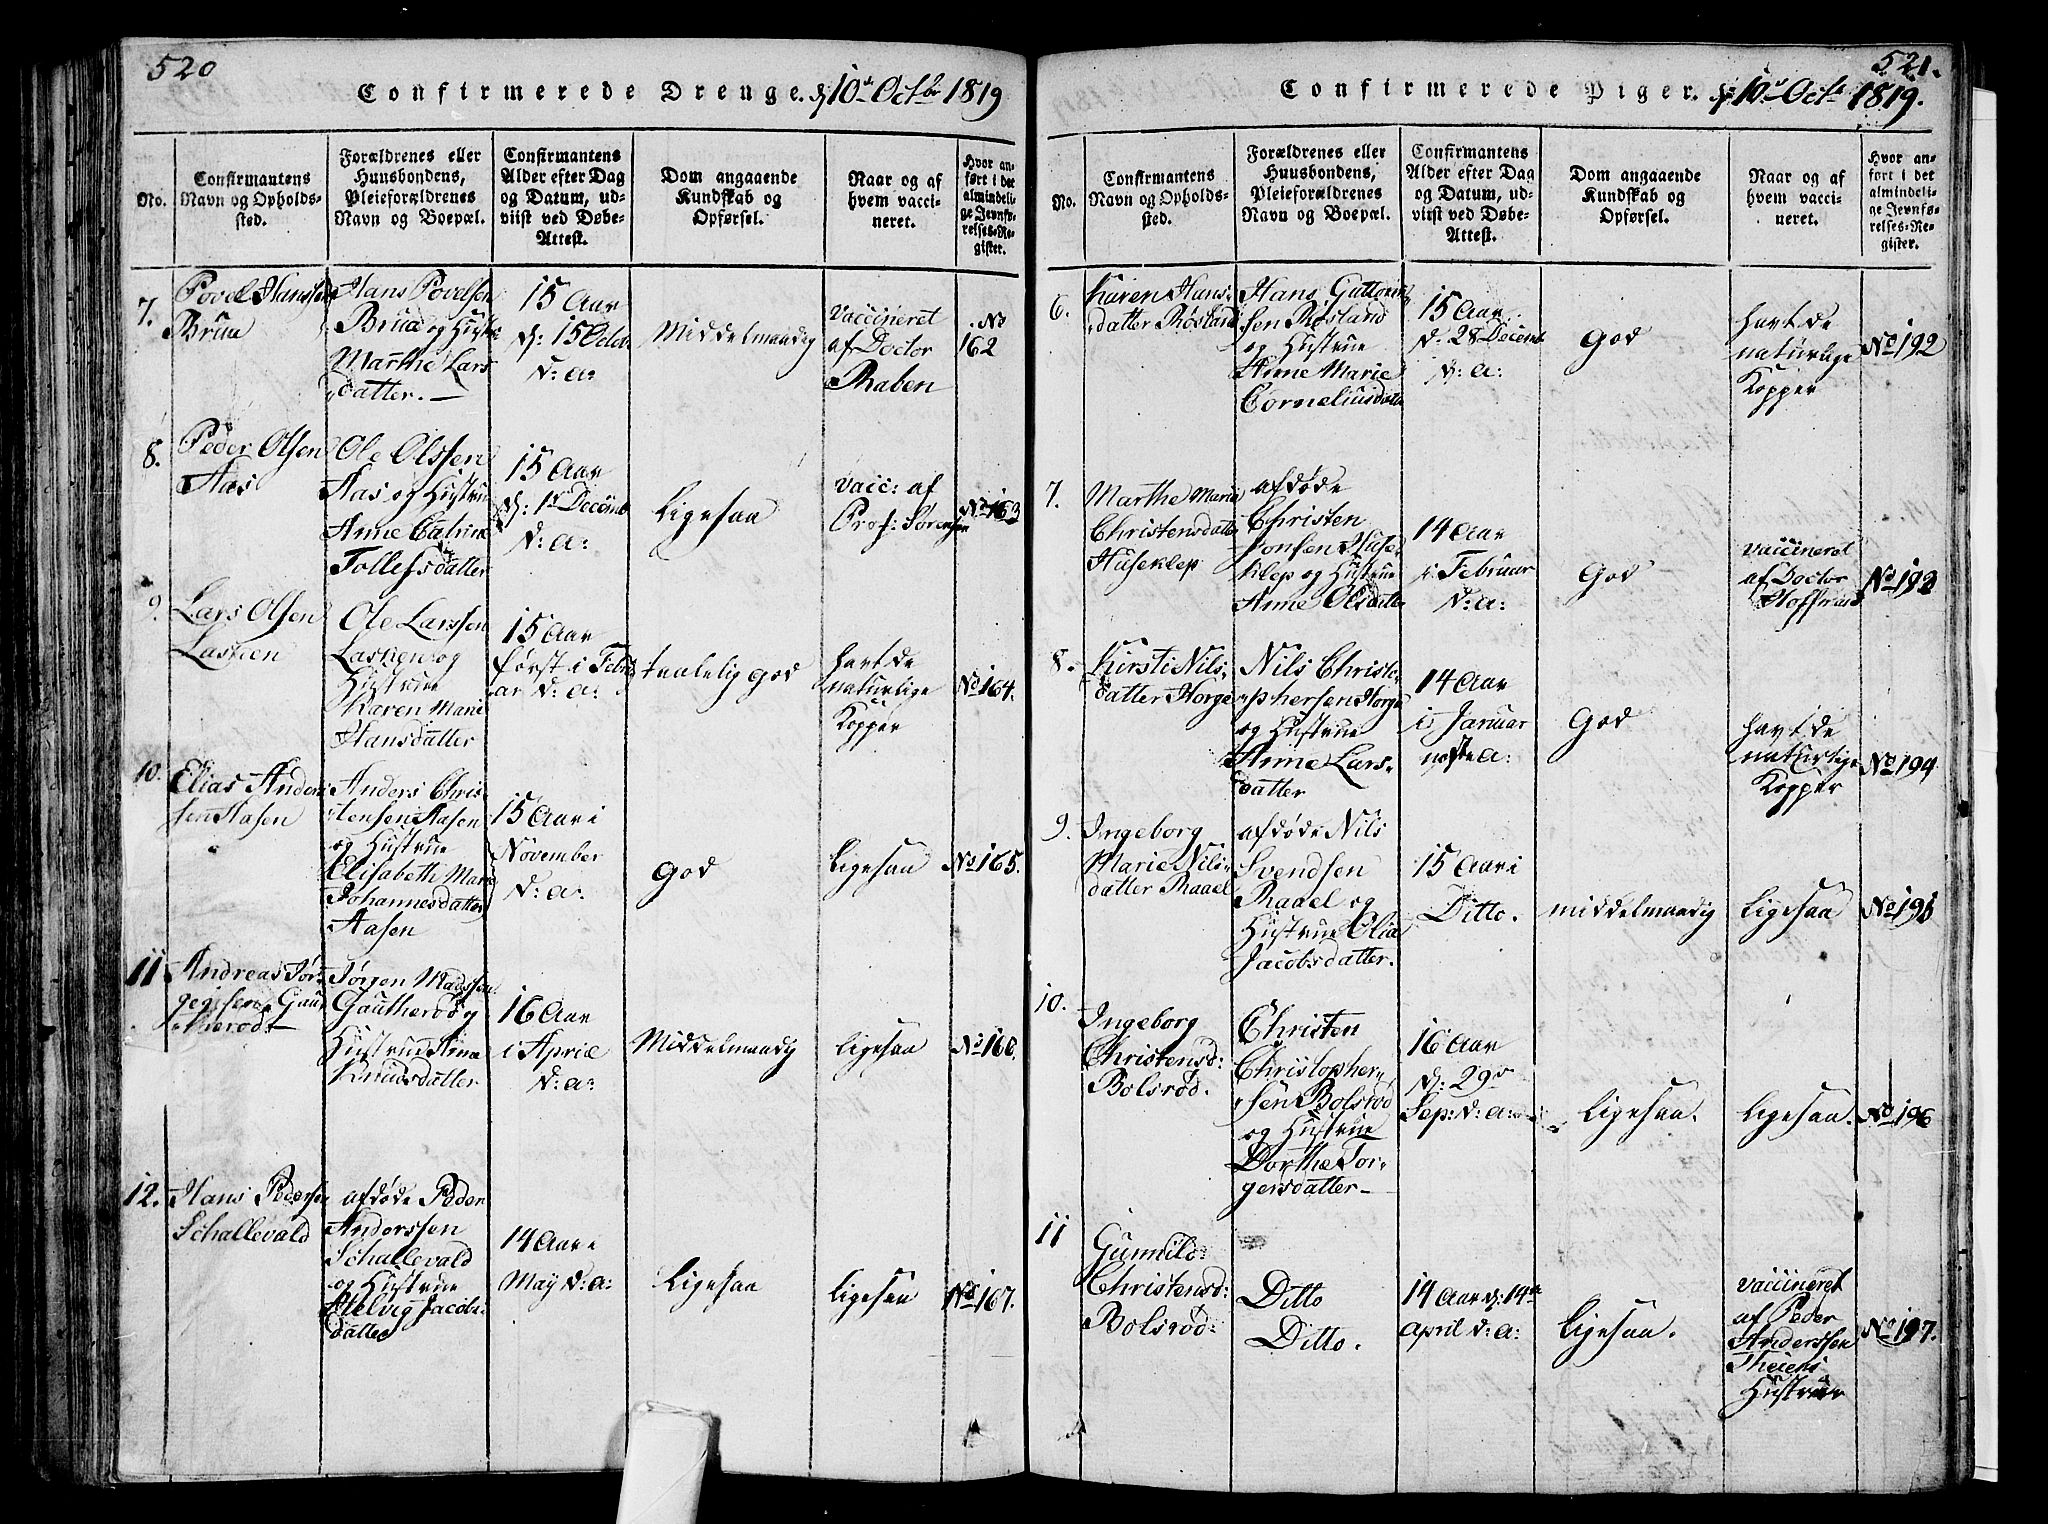 520
Confirmerede Drenge. d: 10de Octbr 1819
No.
Confirmantens
Navn og Opholds-
sted.
Forældrenes eller
Huusbondens,
Pleieforældrenes
Navn og Boepæl.
Confirmantens
Alder efter Dag
og Datum, ud-
viist ved Døbe-
Attest.
Dom angaaende
Kundskab og
Opførsel.
Naar og af
hvem vacci-
neret.
Hvor an-
ført i det
almindeli-
ge Jevnfø-
relses-Re-
gister.
7.
Povel Hanssen
Bruu
Hans Povelsen
Bruu og Hustru
Marthe Lars
datter.
15 Aar
d: 15 Octbr
d: a:
Middelmaadig
Vaccineret
af Doctor
Raben
No
162
8.
Peder Olsen
Aas
Ole Olssen
Aas og Hustrue
Anne Catrine
Tollefsdatter
15 Aar
d: 1ste Decemb
d: a:
Ligesaa
Vacc: af
Prof: Sørensen
No 163
9.
Lars Olsen
Laskien
Ole Larssen
Laskien og
Hustrue
Karen Marie
Hansdatter
15 Aar
først i Febru
ar d: a:
taalelig god
havt de
naturlige
Kopper
No 164.
10.
Elias Ander
sen Aasen
Anders Chris
tensen Aasen
og Hustrue
Elisabeth Marie
Johannesdatter
Aasen
15 Aar i
November
d: a:
God
Ligesaa
No 165.
11
Andreas Jør-
gegisen Gaut
herød
Jørgen Madssen
Gautherød og
Hustrue Anne
Knudsdatter
16 Aar
i April
d: a:
Middelmaadig
Ligesaa
No 166.
12.
Hans Pedersen
Schallevald
afdøde Peder
Anderssen
Schallevald
og Hustrue
Helvig Jacobs-
datter
14 Aar i
May d: a:
Ligesaa
Ligesaa
No 167.
521.
Confirmerede Piger. d: 10de Octbr 1819.
No.
Confirmantens
Navn og Opholds-
sted.
Forældrenes eller
Huusbondens,
Pleieforældrenes
Navn og Boepæl.
Confirmantens
Alder efter Dag
og Datum, ud-
viist ved Døbe-
Attest.
Dom angaaende
Kundskab og
Opførsel.
Naar og af
hvem vacci-
neret.
Hvor an-
ført i det
almindeli-
ge Jevnfø-
relses-Re-
gister.
6.
Karen Hans-
datter Røsland
Hans Guttorm-
sen Røsland
og Hustrue
Anne Marie
Corneliusdatter
15 Aar
d. 28 Decemb
d: a:
God
havt de
naturlige
Kopper
No 192
7.
Marthe Maria
Christensdatter
Huseklep
afdøde
Christen
Jonsen Huse-
klep og Hustrue
Anne Olsdatter
14 Aar
i Februar
d: a:
God
Vaccineret
af Doctor
No 193
8.
Kirsti Nils-
datter Horge
Nils Christo-
phersen Horge
og Hustrue
Anne Lars-
datter
14 Aar
i Januar
næste a:
God
havt de
naturlige
Kopper
No 194
9.
Ingeborg
Marie Nils-
datter Raael
afdøde Nils
Svendsen
Raael og
Hustrue Olia
Jacobsdatter.
15 Aar i
Ditto.
middelmaadig
Ligesaa
No 195
10.
Ingeborg
Christensd:
Bolsrød.
Christen
Christopher-
sen Bolsrød
og Hustrue
Dorthe Tor-
gersdatter
16 Aar
d: 29de
Sep: d: a:
Ligesaa.
Ligesaa.
No 196
11
Gunnild
Christensd:
Bolsrød:
Ditto
Ditto.
14 Aar d: 14de
April d: a:
Ligesaa.
Vaccineret
af Peder
Anderssen
Theiens
Hustrue
No 197.